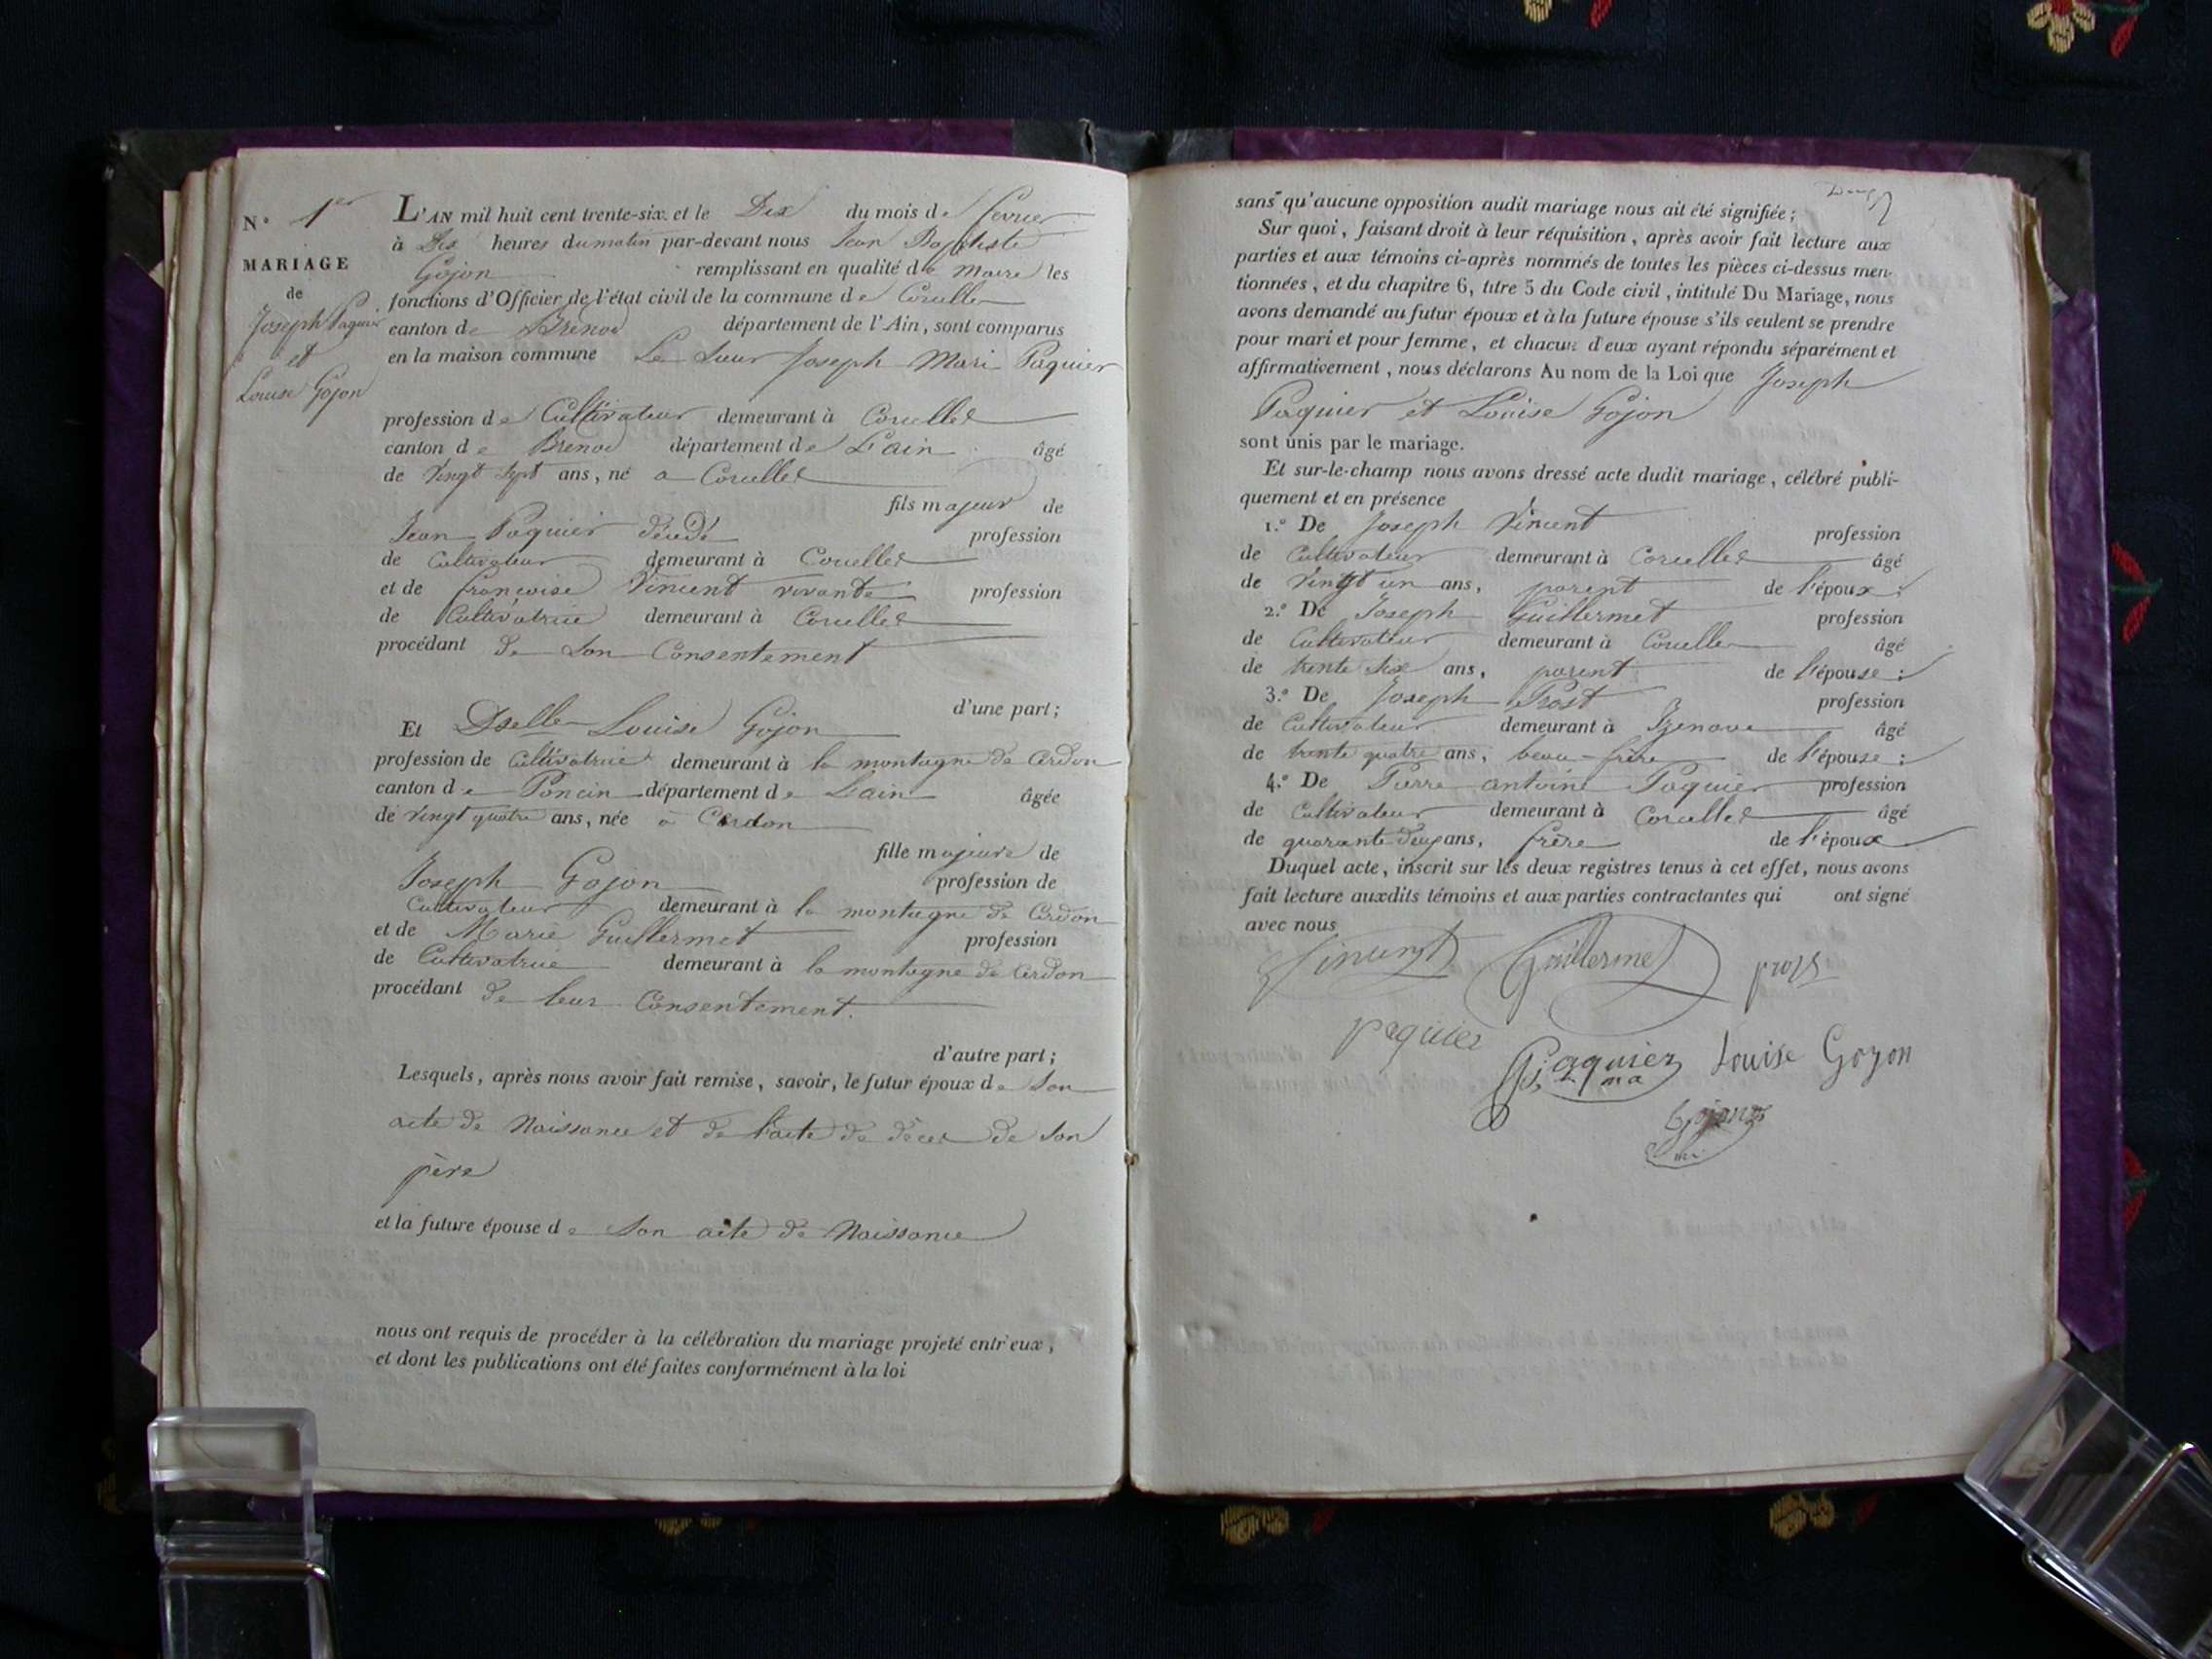 N.° 1er
MARIAGE
de
Joseph Paquier
et
Louise Gojon
L'AN mil huit cent trente-six et le Dix du mois de fevrier
à Dix heures du matin par-devant nous Jean Baptiste
Gojon remplissant en qualité de maire les
fonctions d'Officier de l'état civil de la commune de Corcelles
canton de Brénod département de l'Ain, sont comparus
en la maison commune Le Sieur Joseph Mari Paquier
profession de Cultivateur demeurant à Corcelles
canton de Brenod département de L'ain âgé
de vingt sept ans, né a Corcelles
fils majeur de
Jean Paquier décédé profession
de Cultivateur demeurant à Corcelles
et de francoise Vincent vivante profession
de Cultivatrice demeurant à Corcelles
procédant de son Consentement
d'une part;
Et Dselle Louise Gojon
profession de Cultivatrice demeurant à la montagne de Cerdon
canton de Poncin département de L'ain âgée
de vingt quatre ans, née a Cerdon
fille majeure de
Joseph Gojon profession de
Cultivateur demeurant à la montagne de Cerdon
et de Marie Guillermet profession
de Cultivatrice demeurant à la montagne de Cerdon
procédant de leur Consentement.
d'autre part;
Lesquels, après nous avoir fait remise, savoir, le futur époux de son
acte de Naissance et de l'acte de décès de son
père
et la future épouse de son acte de Naissance
nous ont requis de procéder à la célébration du mariage projeté entr'eux,
et dont les publications ont été faites conformément à la loi
sans qu'aucune opposition audit mariage nous ait été signifiée;
Sur quoi, faisant droit à leur réquisition, après avoir fait lecture aux
parties et aux témoins ci-après nommés de toutes les pièces ci-dessus men-
tionnées, et du chapitre 6, titre 5 du Code civil, intitulé Du Mariage, nous
avons demandé au futur époux et à la future épouse s'ils veulent se prendre
pour mari et pour femme, et chacun d'eux ayant répondu séparément et
affirmativement, nous déclarons Au nom de la Loi que Joseph
Paquier et Louise Gojon
sont unis par le mariage.
Et sur-le-champ nous avons dressé acte dudit mariage, célébré publi-
quement et en présence
1.° De Joseph Vincent profession
de Cultivateur demeurant à Corcelles âgé
de vingt un ans, parent de l'époux;
2.° De Joseph Guillermet profession
de Cultivateur demeurant à Corcelles âgé
de trente six ans, parent de l'épouse;
3.° De Joseph Prost profession
de Cultivateur demeurant à Izenave âgé
de trente quatre ans, beau-frère de l'épouse;
4.° De Pierre antoine Paquier profession
de Cultivateur demeurant à Corcelles âgé
de quarante deux ans, frère de l'époux
Duquel acte, inscrit sur les deux registres tenus à cet effet, nous avons
fait lecture auxdits témoins et aux parties contractantes qui ont signé
avec nous
Vincent Guillermet prost
paquier
Paquier Louise Gojon
Gojon